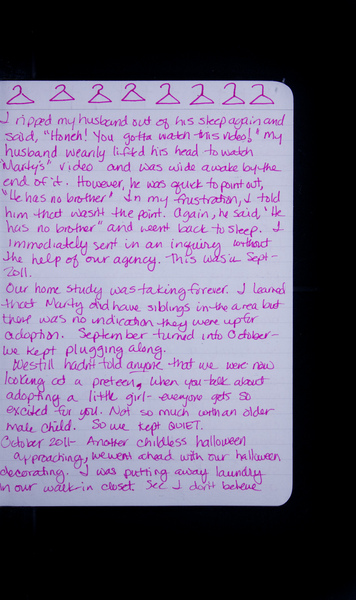 I ripped my husband out of his sleep again and
said, "Honeh! You gotta watch this video!" my
husband wearily lifted his head to watch
"Marty's" video and was wide awake by the
end of it. However, he was quick to point out,
"He has no brother." In my frustration, I told
him that wasn't the point. Again, he said, "He
has no brother" and went back to sleep. I
immediately sent in an inquiry without
the help of our agency. This was in Sept-
2011.
Our home study was taking forever. I learned
that Marty did have siblings in the area but
there was no indication they were up for
adoption. September turned into October-
we kept plugging along.
We still hadn't told anyone that we were now
looking at a preteen, when you talk about
adopting a little girl- everyone gets so
excited for you. Not so much with an older
male child. So we kept QUIET.
October 2011- Another childless halloween
approaching, we went ahead with our halloween
decorating. I was putting away laundry
in our walk-in closet. See I don't believe